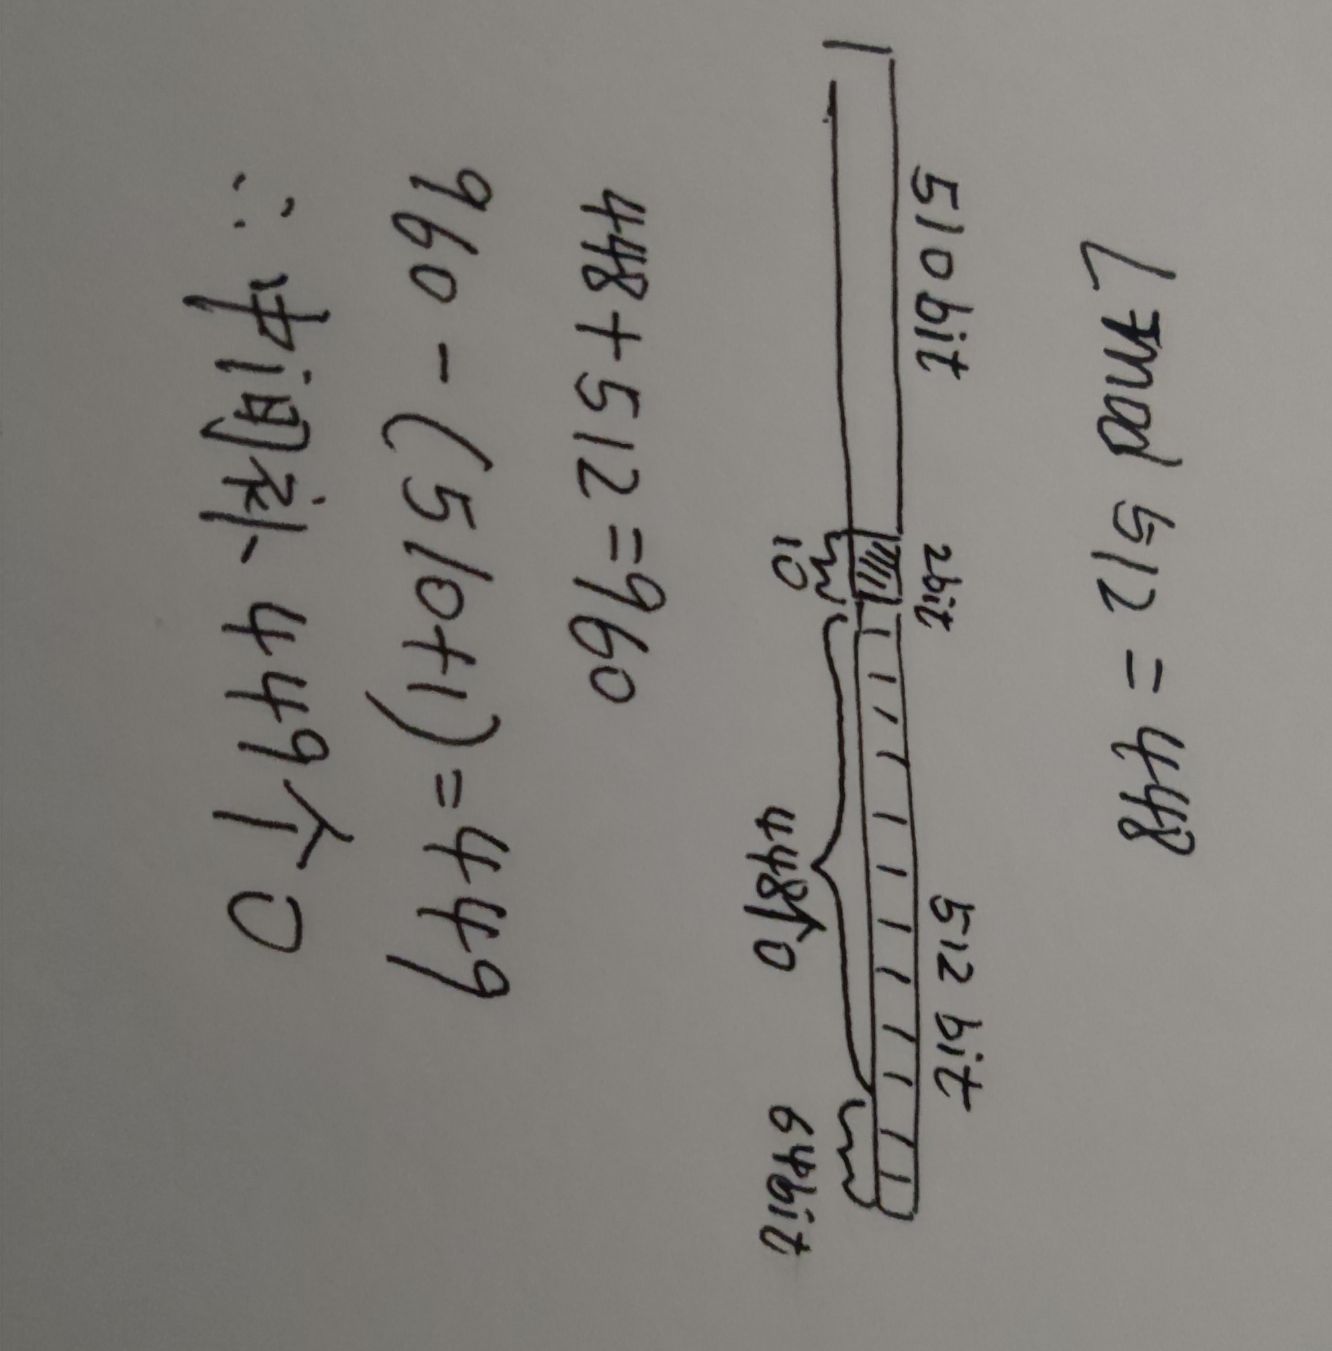 Lmod 512 = 448
510bit 2bit 512 bit
10 448个0 64bit
448+512=960
960-(510+1)=449
∴中间补449个0